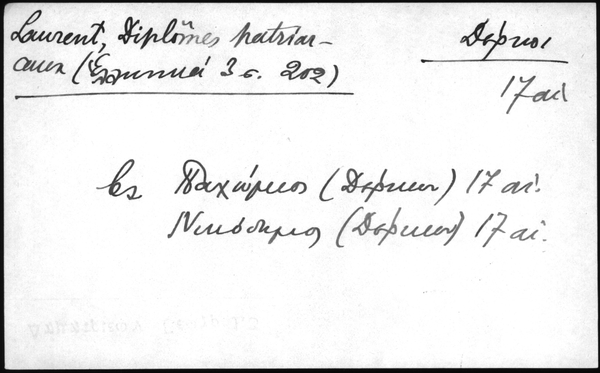 Laurent, Diplômes patriar-
caux (Ἑλληνικά 3 σ. 202)
Δέρκοι
17 αἰ
ἐς Παχώμιος (Δέρκων) 17 αἰ.
Νικόδημος (Δέρκων) 17 αἰ.